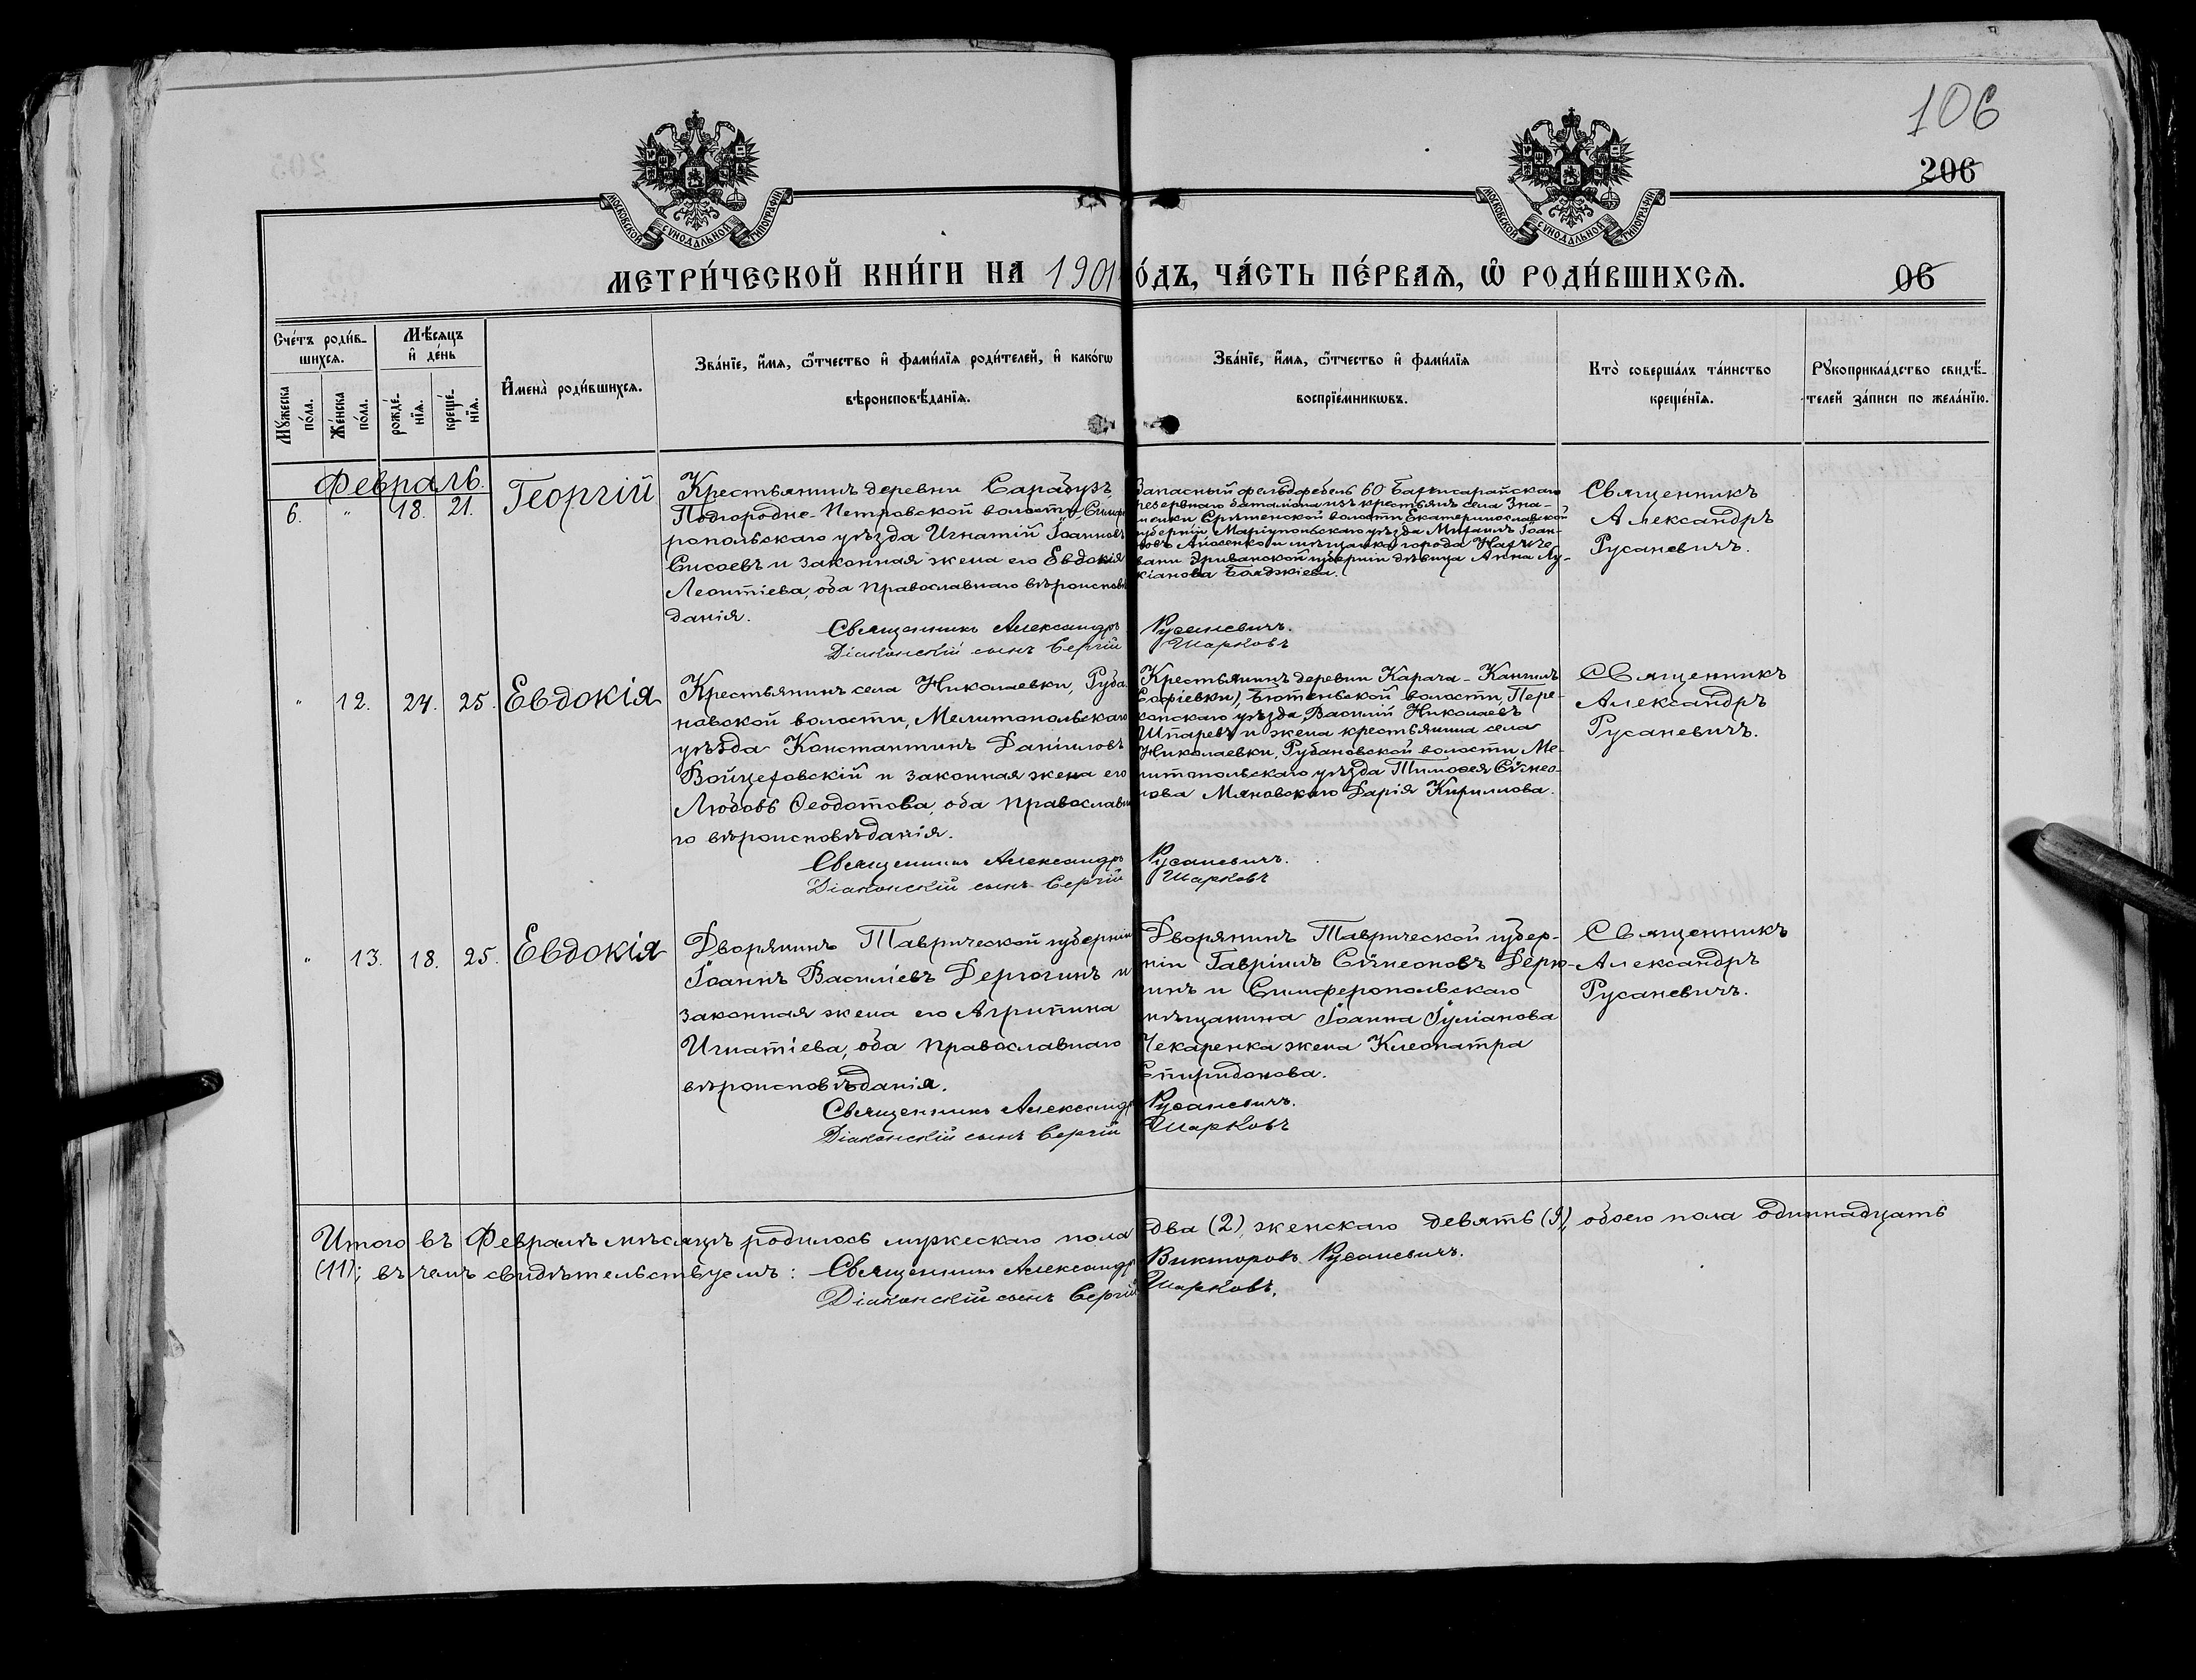 106
206
МОСКОВСКОЙ СУНОДАЛЬНОЙ ТИПОГРАФІИ
МОСКОВСКОЙ СУНОДАЛЬНОЙ ТИПОГРАФІИ
МЕТРИ́ЧЕСКОЙ КНИ́ГИ НА 1901 О́ДЪ, ЧА́СТЬ ПЕ́РВАѦ, Ѽ РОДИ́ВШИХСѦ.
06
Сче́тъ роди́в-
шихсѧ.
Мѣ́сѧцъ
и҆ де́нь
Мꙋ́жеска
по́ла.
Же́нска
по́ла.
рожде́-
нїѧ.
креще́-
нїѧ.
И҆мена̀ роди́вшихсѧ.
Зва́нїе, и҆́мѧ, ѻ҆́тчество и҆ фами́лїѧ роди́телей, и҆ како́гѡ
вѣроисповѣ́данїѧ.
Зва́нїе, и҆́мѧ, ѻ҆́тчество и҆ фами́лїѧ
воспрїе́мникѡвъ.
Кто̀ соверша́лъ та́инство
креще́нїѧ.
Рꙋкоприкла́дство свидѣ́-
телей за́писи по жела́нїю.
Февраль.
6. " 18. 21. Георгій
Крестьянинъ деревни Сарабузъ,
Подгородне-Петровской волости, Симфе
ропольскаго уѣзда Игнатій Іоанновъ
Сысоевъ и законная жена его Евдокія
Леонтіева, оба православнаго вѣроисповѣ
данія.
Священникъ Александръ
Діаконскій сынъ Сергій
Запасный фельдфебель 60
резервнаго баталіона изъ крестьянъ села Зна-
менки волости Екатеринославской
губерніи, Маріупольскаго уѣзда Михаилъ Іоан-
новъ и мѣщанка города Нахиче-
вани Эриванской губерніи дѣвица Анна Лу-
кіанова
Русаневичъ.
Шарковъ
Священникъ
Александръ
Русаневичъ.
" 12. 24. 25. Евдокія
Крестьянинъ села Николаевки, Руба
новской волости, Мелитопольскаго
уѣзда Константинъ Даніиловъ
Войцеховскій и законная жена его
Любовь Ѳеодотова, оба православна
го вѣроисповѣданія.
Священникъ Александръ
Діаконскій сынъ Сергій
Крестьянинъ деревни Карача-Кангилъ
Софіевки), Бютеньской волости, Пере-
копскаго уѣзда, Василій Николаевъ
Шпаревъ и жена крестьянина села
Николаевки, Рубановской волости Ме-
литопольскаго уѣзда Тимоѳея Сѵмео-
нова Мяновскаго Дарія Кириллова.
Русаневичъ.
Шарковъ
Священникъ
Александръ
Русаневичъ.
" 13. 18. 25. Евдокія
Дворянинъ Таврической губерніи
Іоаннъ Василіевъ Дерюгинъ и
законная жена его Агрипина
Игнатіева, оба православнаго
вѣроисповѣданія.
Священникъ Александръ
Діаконскій сынъ Сергій
Дворянинъ Таврической губер-
ніи Гавріилъ Сѵмеоновъ Дерю-
гинъ и Симферопольскаго
мѣщанина Іоанна Іуліанова
Чекаренка жена Клеопатра
Спиридонова.
Русаневичъ.
Шарковъ
Священникъ
Александръ
Русаневичъ.
Итого въ Февралѣ мѣсяцѣ родилось мужескаго пола два (2), женскаго девять (9), обоего пола одиннадцать
(11); въ чемъ свидѣтельствуемъ: Священникъ Александръ Викторовъ Русаневичъ.
Діаконскій сынъ Сергій Шарковъ.